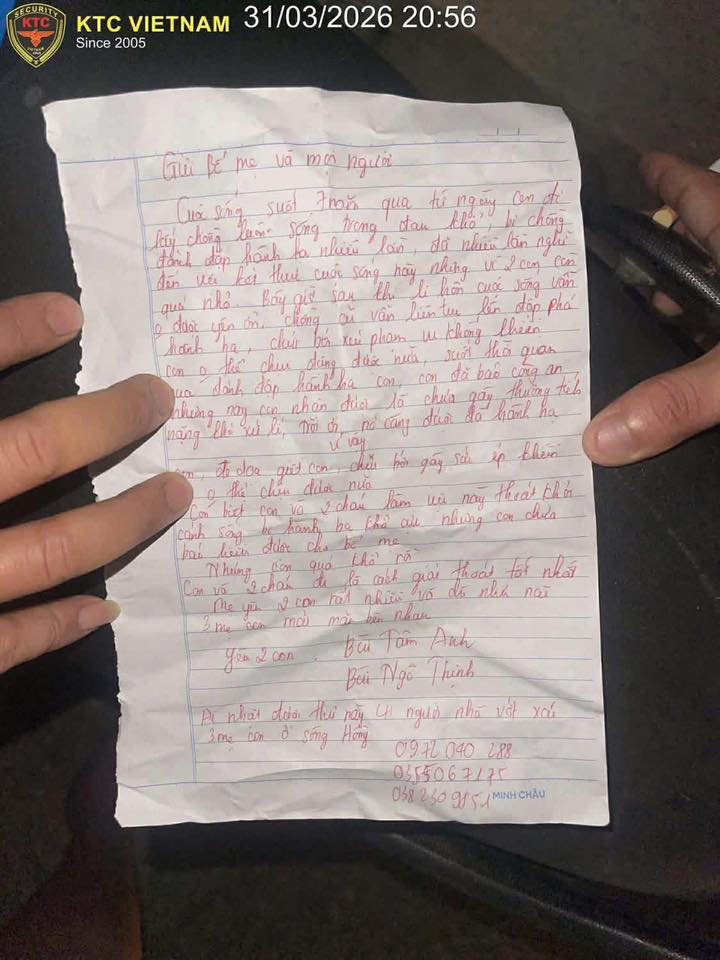 KTC VIETNAM
Since 2005
31/03/2026 20:56
SECURITY
KTC
Gửi Bố mẹ và mọi người
Cuộc sống suốt 7 năm qua từ ngày con đi
lấy chồng luôn sống trong đau khổ, bị chồng
đánh đập hành hạ nhiều lần đã nhiều lần nghĩ
đến với kết thúc cuộc sống này nhưng vì 2 con còn
quá nhỏ. Bây giờ sau khi li hôn cuộc sống vẫn
o được yên ổn, chồng cũ vẫn liên tục đến đập phá
hành hạ, chửi bới xúc phạm khiến
con o thể chịu đựng được nữa, suốt thời gian
qua đánh đập hành hạ con, con đã báo công an
nhưng nay con nhận được là chưa gây thương tích
nặng khó xử lí, nó càng được đà hành hạ
vì vậy
con, đe doạ giết con, chửi bới gây sức ép khiến
o thể chịu được nữa
Con biết con và 2 cháu làm việc này thoát khỏi
cảnh sống bị hành hạ khổ nhưng con chưa
báo hiếu được cho bố mẹ
Nhưng con quá khổ rồi
Con và 2 cháu đi là cách giải thoát tốt nhất
Mẹ yêu 2 con rất nhiều và dù như nào
3 mẹ con mãi mãi bên nhau
Yêu 2 con. Bùi Tâm Anh
Bùi Ngô Thịnh
Ai nhặt được thư này người nhà vớt xác
3 mẹ con ở sông Hồng
0972 040 288
0355067175
MINH CHÂU